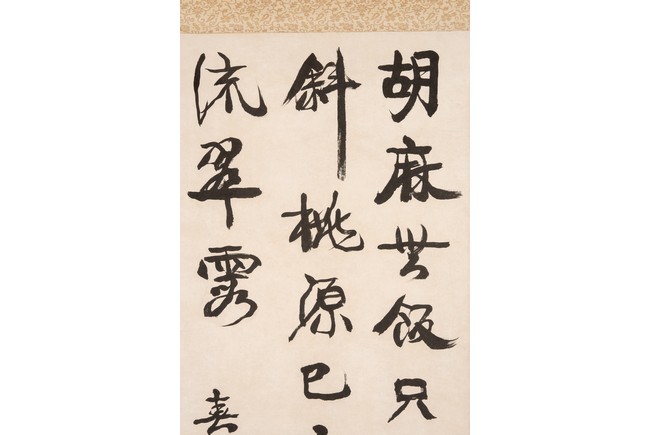 胡麻飯只
斜桃源已
流翠霞